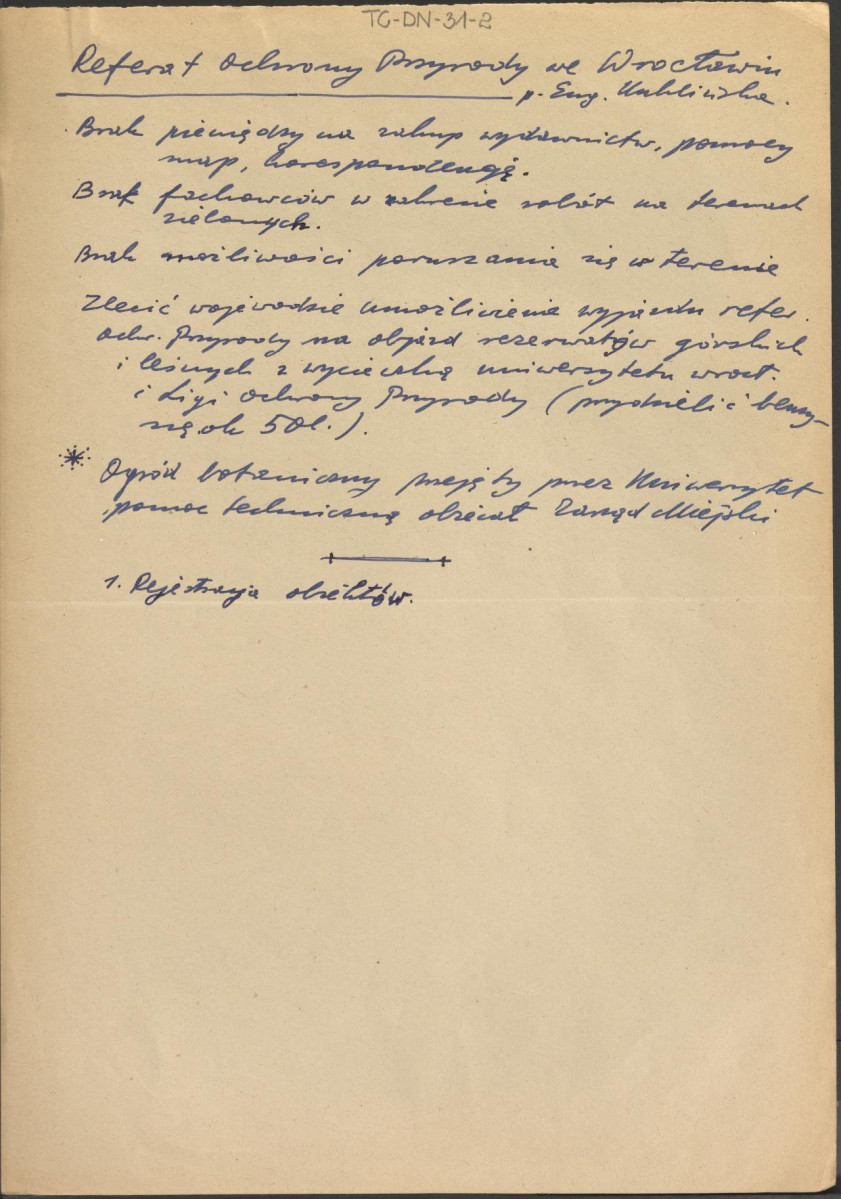 TC-DN-31-2
Referat Ochrony Przyrody we Wrocławiu
p. Eug. Kublińska.
Brak pieniędzy na zakup wydawnictw, pomocy
map, korespondencję.
Brak fachowców w zakresie robót na terenach
zielonych.
Brak możliwości poruszania się w terenie
Zlecić wojewodzie umożliwienie wyjazdu refer.
Ochr. Przyrody na objazd rezerwatów górskich
i leśnych z wycieczką uniwersytetu wrocł.
i Ligi Ochrony Przyrody (przydzielić benzy-
nę ok 50l.).
Ogród botaniczny przejęty przez Uniwersytet
pomoc techniczną obiecał Zarząd Miejski
1. Rejestracja obiektów.